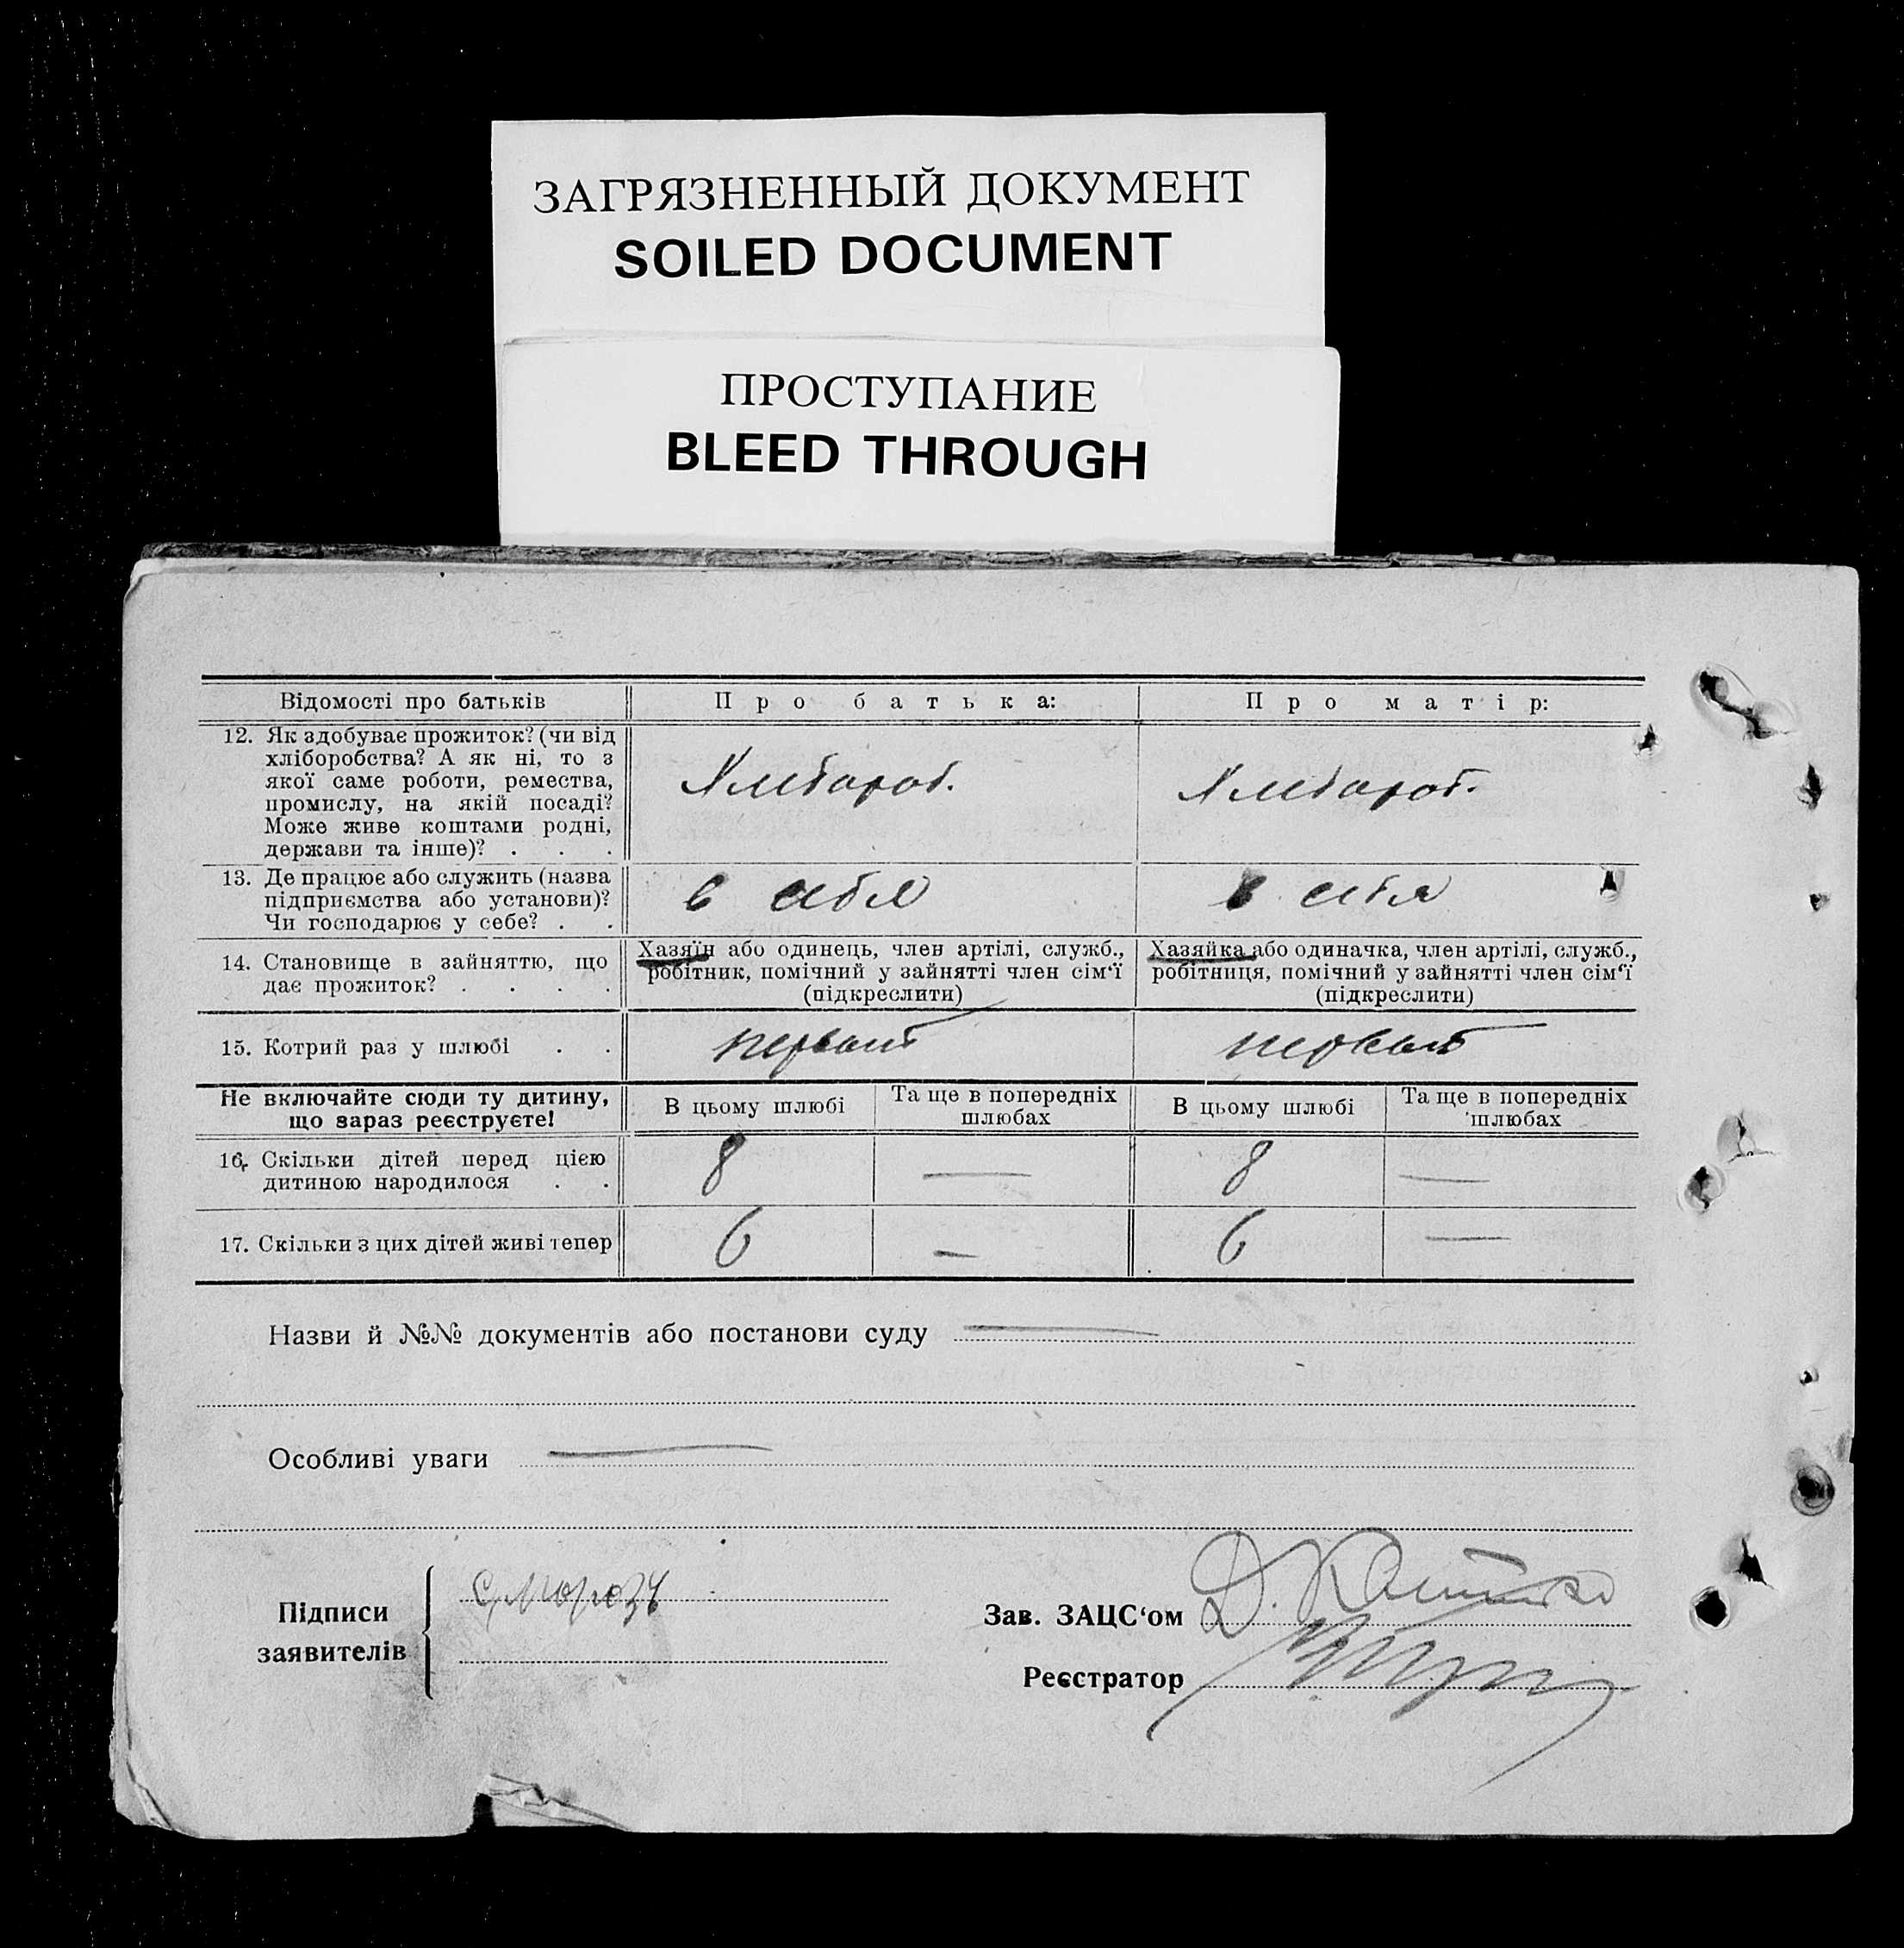 ЗАГРЯЗНЕННЫЙ ДОКУМЕНТ
SOILED DOCUMENT
ПРОСТУПАНИЕ
BLEED THROUGH
Відомості про батьків
Про батька:
Про матір:
12. Як здобуває прожиток? (чи від
хліборобства? А як ні, то з
якої саме роботи, ремества,
промислу, на якій посаді?
Може живе коштами родні,
держави та інше)? . . .
Хлебороб.
Хлебороб.
13. Де працює або служить (назва
підприємства або установи)?
Чи господарює у себе? . .
в себя
в себя
14. Становище в зайняттю, що
дає прожиток? . . . .
Хазяїн або одинець, член артілі, служб.,
робітник, помічний у зайнятті член сім‘ї
(підкреслити)
Хазяйка або одиначка, член артілі, служб.,
робітниця, помічний у зайнятті член сім‘ї
(підкреслити)
15. Котрий раз у шлюбі . .
первый
первый
Не включайте сюди ту дитину,
що зараз реєструєте!
В цьому шлюбі
Та ще в попередніх
шлюбах
В цьому шлюбі
Та ще в попередніх
шлюбах
16. Скільки дітей перед цією
дитиною народилося . .
8
—
8
—
17. Скільки з цих дітей живі тепер
6
—
6
—
Назви й №№ документів або постанови суду —
Особливі уваги —
Підписи
заявителів
С. Морозъ
Зав. ЗАЦС‘ом
Д.
Реєстратор